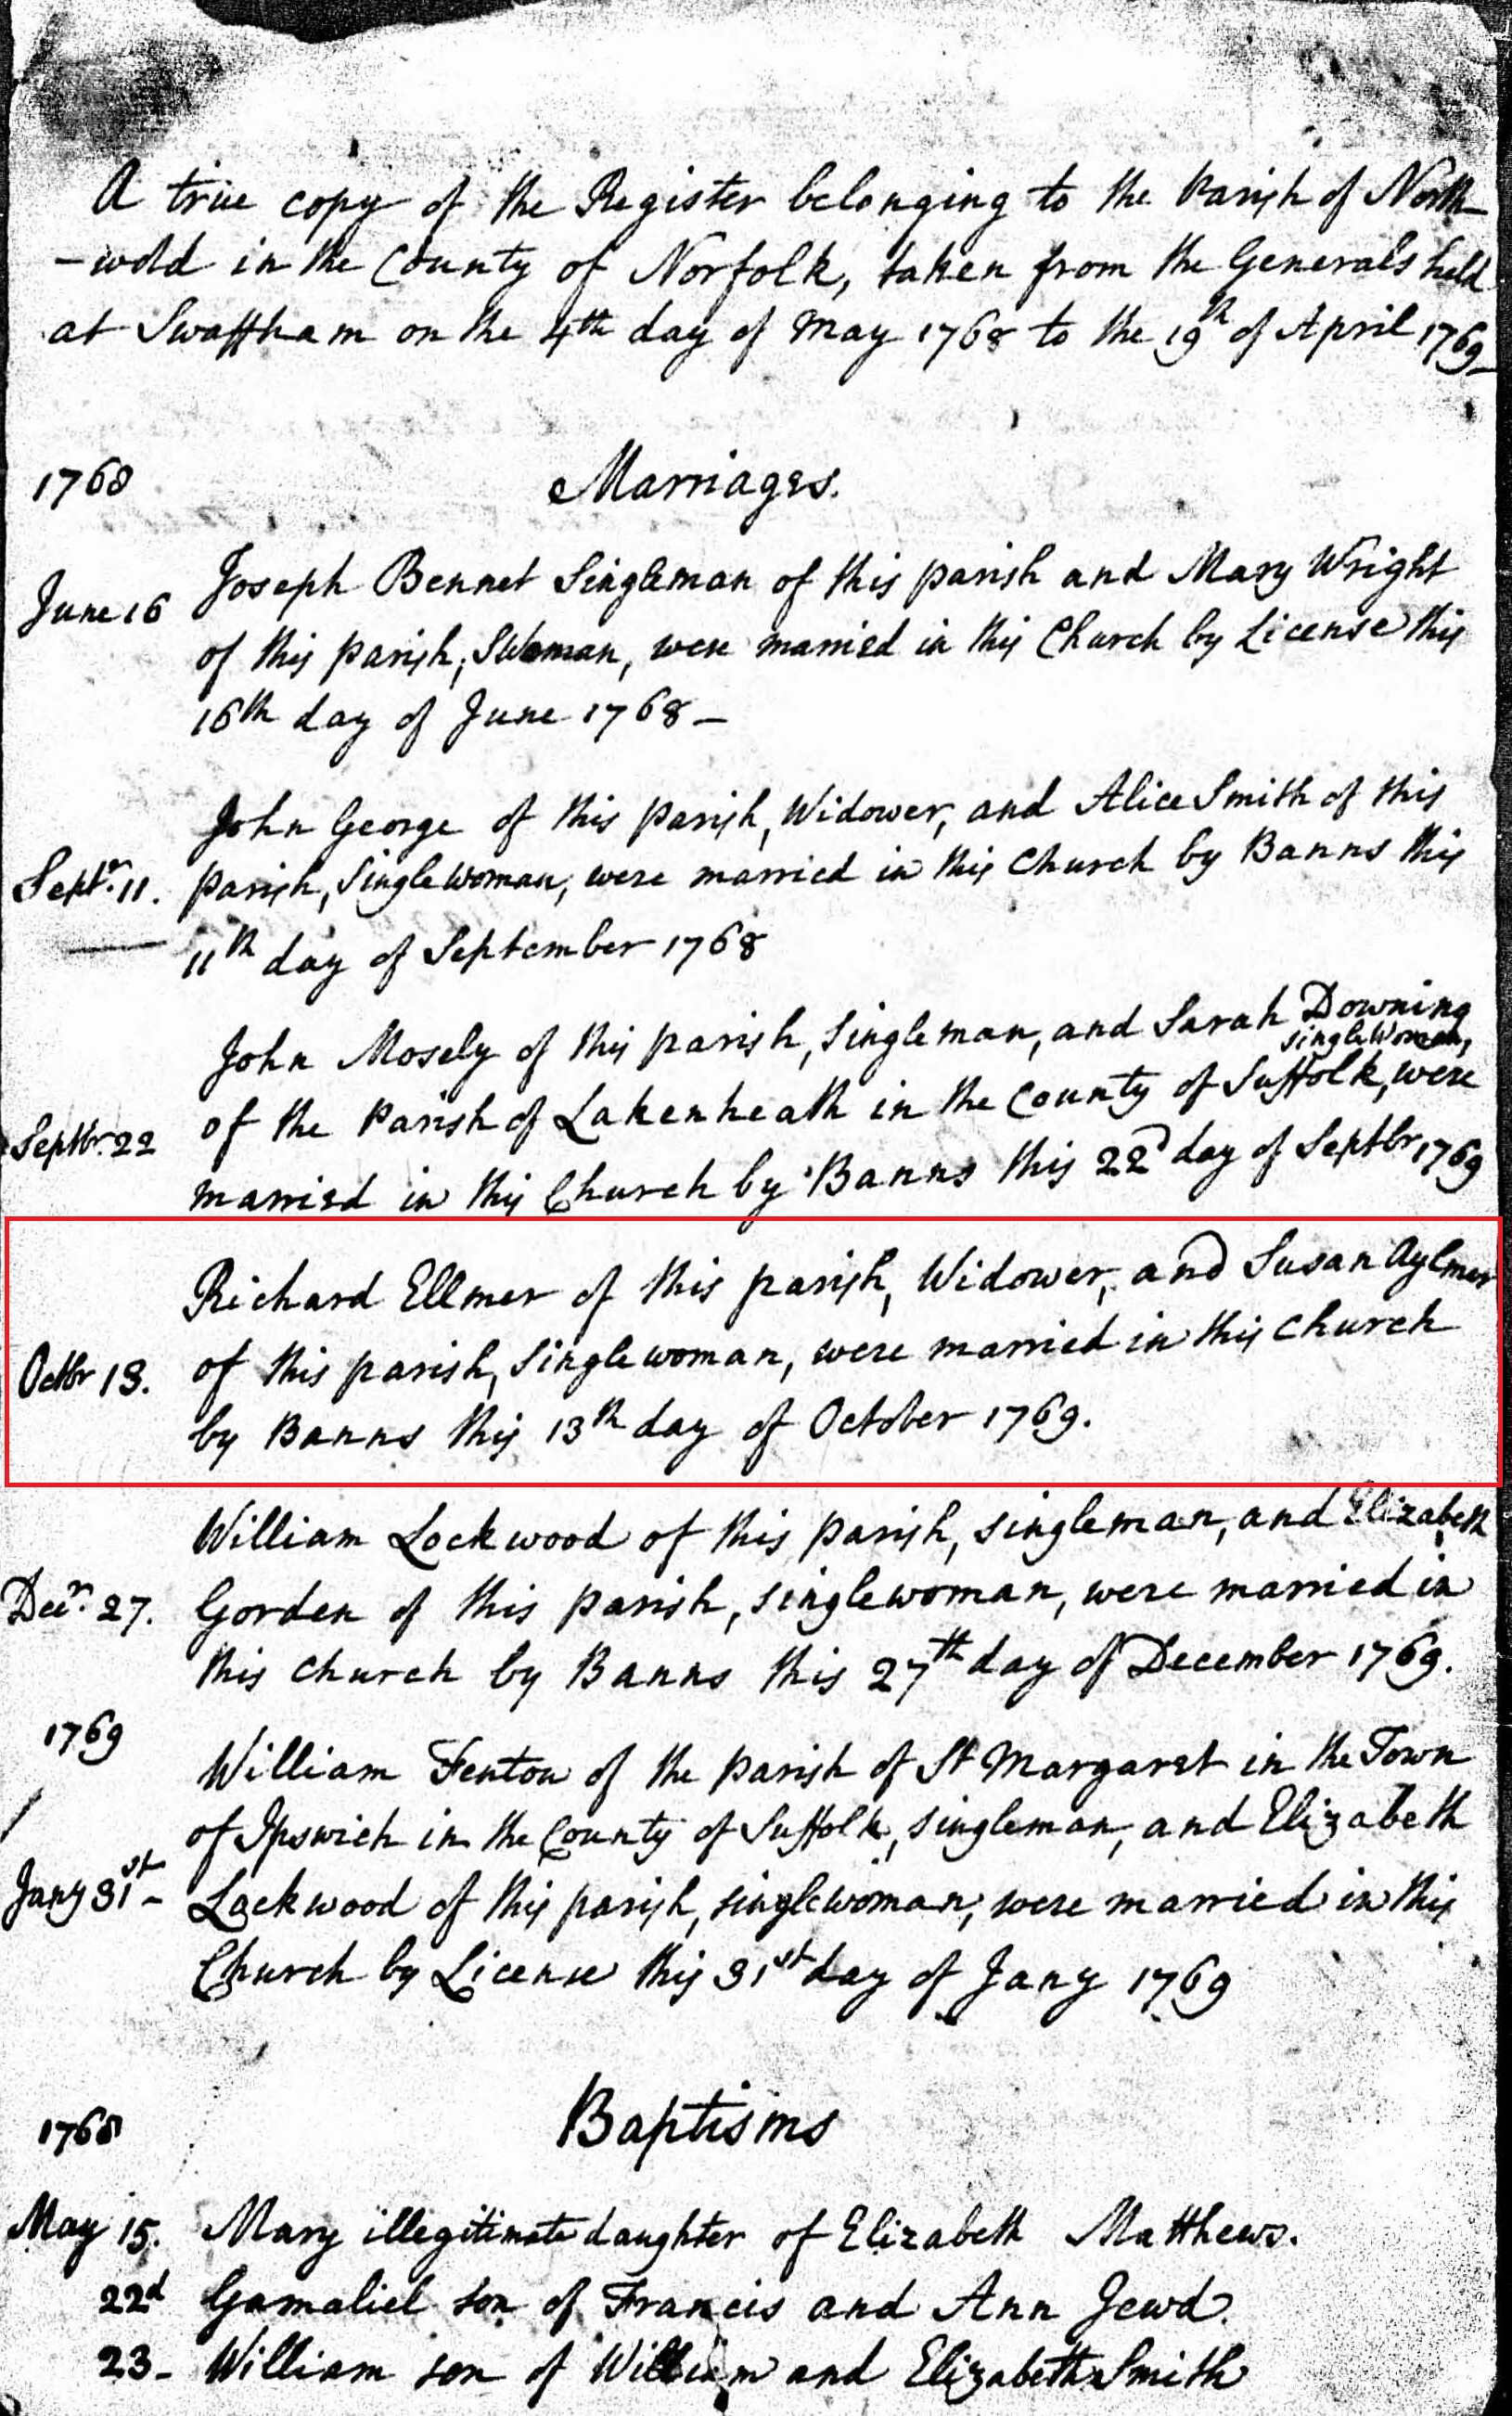 A true copy of the Register belonging to the Parish of North
-wold in the County of Norfolk, taken from the Generals held
at Swaffham on the 4th day of May 1768 to the 19th of April 1769
1768 Marriages.
Joseph Bennet Singleman of this parish and Mary Wright
June 16 of this parish, SWoman, were married in this Church by License this
16th day of June 1768 -
John George of this parish, Widower, and Alice Smith of this
Septr. 11. parish, Singlewoman, were married in this Church by Banns this
11th day of September 1768
John Mosely of this parish, Singleman, and Sarah Downing
singleWoman,
of the Parish of Lakenheath in the County of Suffolk, were
Septbr. 22 married in this Church by Banns this 22d day of Septbr 1769
Richard Ellmer of this parish, Widower, and Susan Aylmer
Octbr 13. of this parish, Singlewoman, were married in this church
by Banns this 13th day of October 1769.
William Lockwood of this parish, singleman, and Elizabeth
Decr. 27. Gorden of this parish, singlewoman, were married in
this church by Banns this 27th day of December 1769.
1769
William Fenton of the parish of St Margaret in the Town
of Ipswich in the County of Suffolk, singleman, and Elizabeth
Jany 31st - Lockwood of this parish, singlewoman, were married in this
Church by License this 31st day of Jany 1769
Baptisms
1768
May 15. Mary illegitimate daughter of Elizabeth Matthews.
22d Gamaliel son of Francis and Ann Jewd.
23 - William son of William and Elizabeth Smith